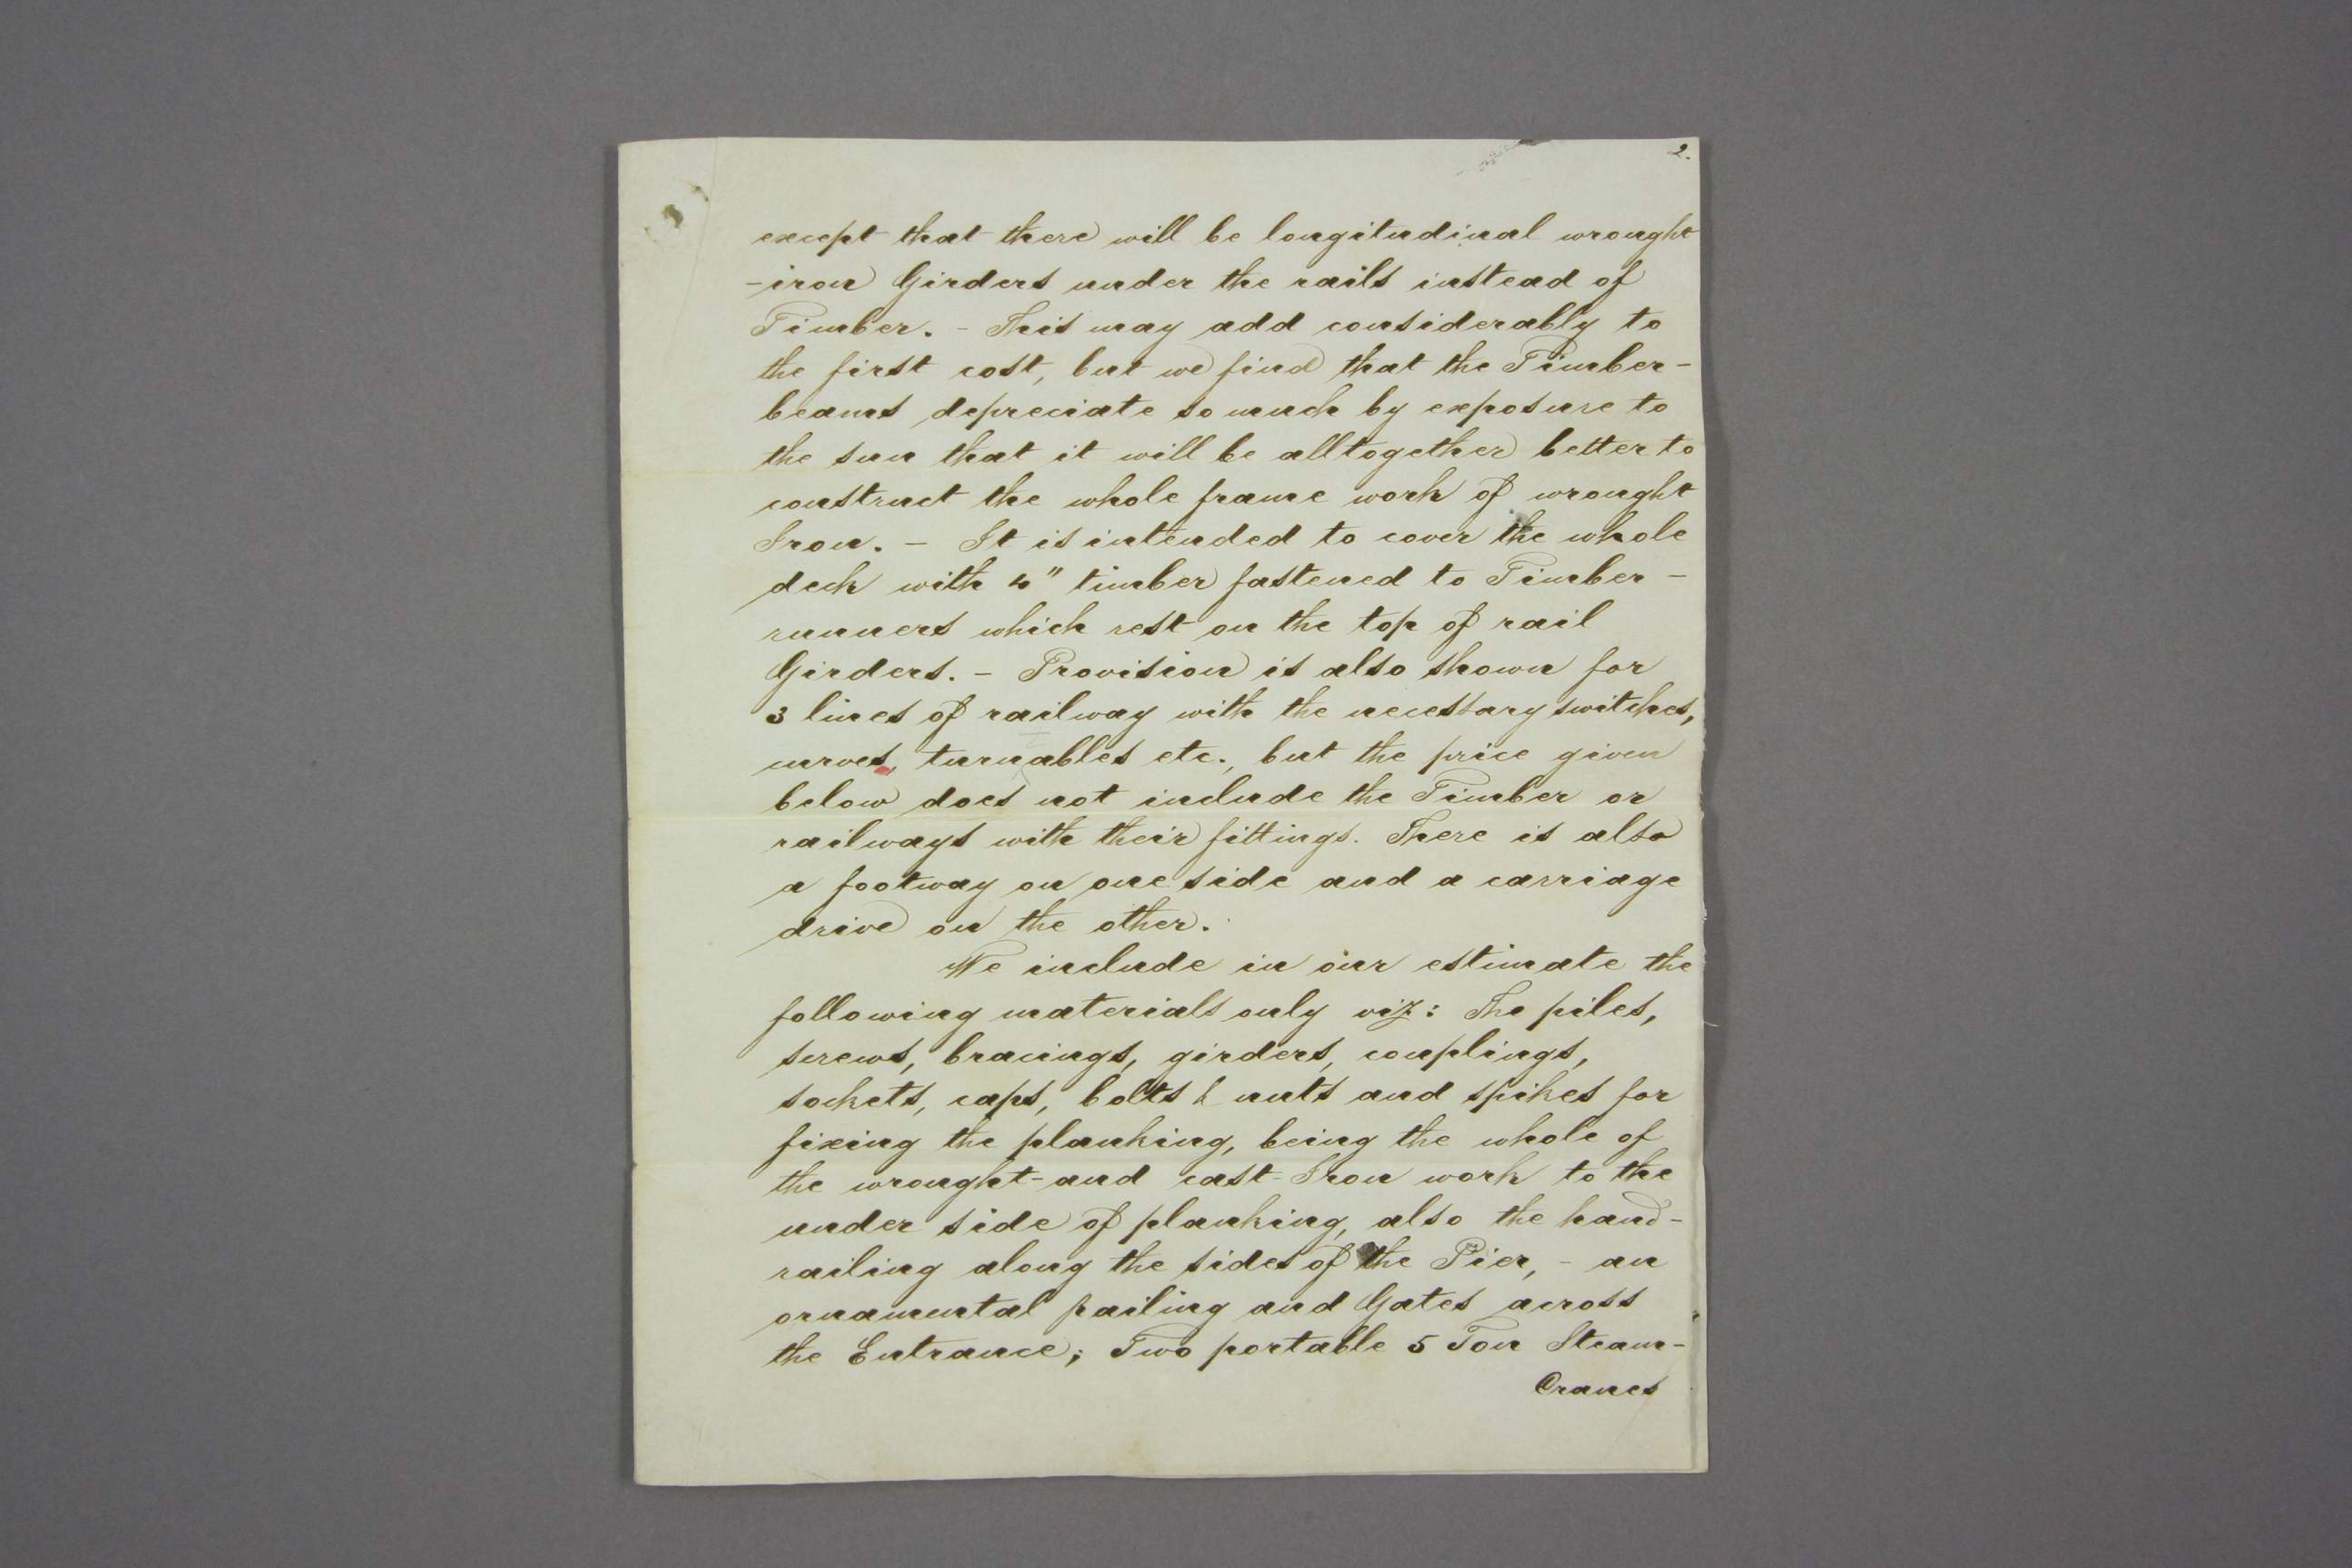 2.
except that there will be longitudinal wrought
-iron Girders under the rails instead of
Timber. - This may add considerably to
the first cost, but we find that the Timber-
beams depreciate so much by exposure to
the sun that it will be alltogether better to
construct the whole frame work of wrought
Iron. - It is intended to cover the whole
deck with 4" timber fastened to Timber -
runners which rest on the top of rail
Girders. - Provision is also shown for
3 lines of railway with the necessary switches,
curves, turnables etc., but the price given
below does not include the Timber or
railways with their fittings. There is also
a footway on one side and a carriage
drive on the other.
We include in our estimate the
following materials only viz: The piles,
screws, bracings, girders, couplings,
sockets, caps, bolts & nuts and spikes for
fixing the planking, being the whole of
the wrought- and cast-Iron work to the
under side of planking, also the hand-
railing along the sides of the Pier, - an
ornamental pailing and Gates across
the Entrance; Two portable 5 Ton Steam-
Cranes